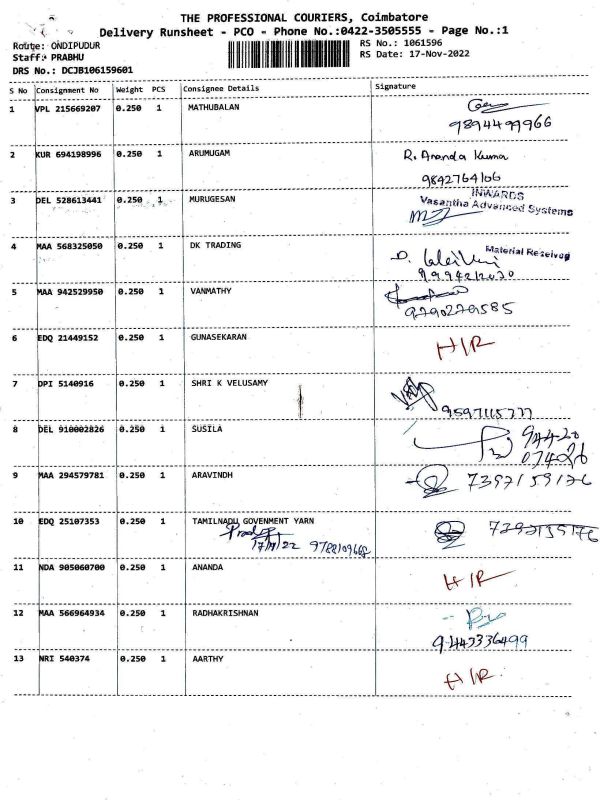 THE PROFESSIONAL COURIERS, Coimbatore
Delivery Runsheet - PCO - Phone No.:0422-3505555 - Page No.:1
Route: ONDIPUDUR
RS No.: 1061596
Staff: PRABHU
RS Date: 17-Nov-2022
DRS No.: DCJB106159601
S No Consignment No Weight PCS Consignee Details Signature
1 VPL 215669207 0.250 1 MATHUBALAN
9894499966
2 KUR 694198996 0.250 1 ARUMUGAM R. Ananda Kumar
9842764106
INWARDS
3 DEL 528613441 0.250 1 MURUGESAN Vasantha Advanced Systems
4 MAA 568325050 0.250 1 DK TRADING Material Received
5 MAA 942529950 0.250 1 VANMATHY
9790279585
6 EDQ 21449152 0.250 1 GUNASEKARAN H/R
7 DPI 5140916 0.250 1 SHRI K VELUSAMY
9597115777
8 DEL 910002826 0.250 1 SUSILA 94420
07426
9 MAA 294579781 0.250 1 ARAVINDH 7397159176
10 EDQ 25107353 0.250 1 TAMILNADU GOVENMENT YARN 7397159176
17/11/22 9788109668
11 NDA 905060700 0.250 1 ANANDA H/R
12 MAA 566964934 0.250 1 RADHAKRISHNAN
9445336499
13 NRI 540374 0.250 1 AARTHY H/R